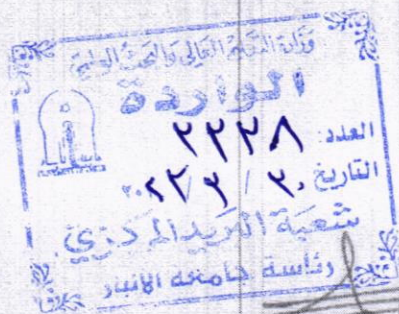 وزارة التعليم العالي والبحث العلمي
الواردة
العدد: ٢٢٢٨
التاريخ ٣٠ / ٣ /
شعبة البريد المركزي
رئاسة جامعة الانبار